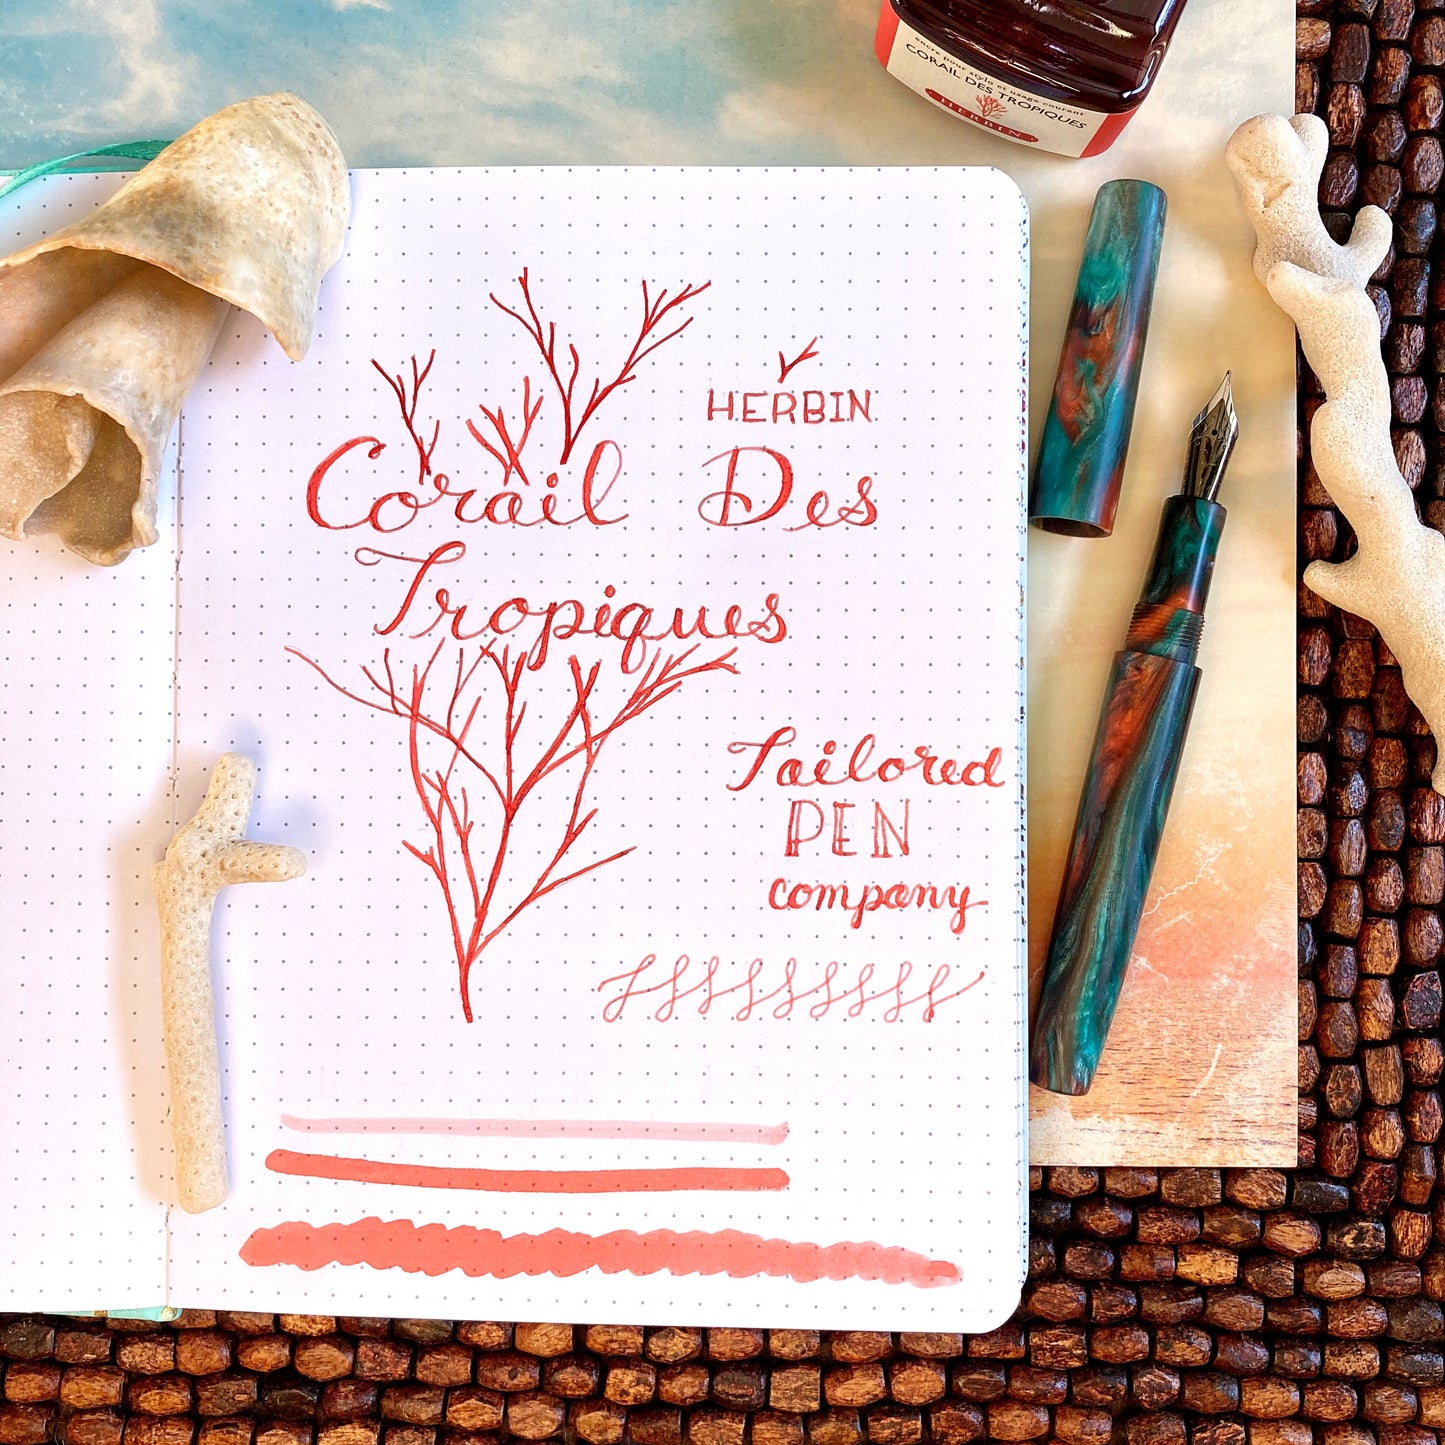 encre pour stylo et usage courant
CORAIL DES TROPIQUES
HERBIN
HERBIN
Corail Des
Tropiques
Tailored
PEN
company